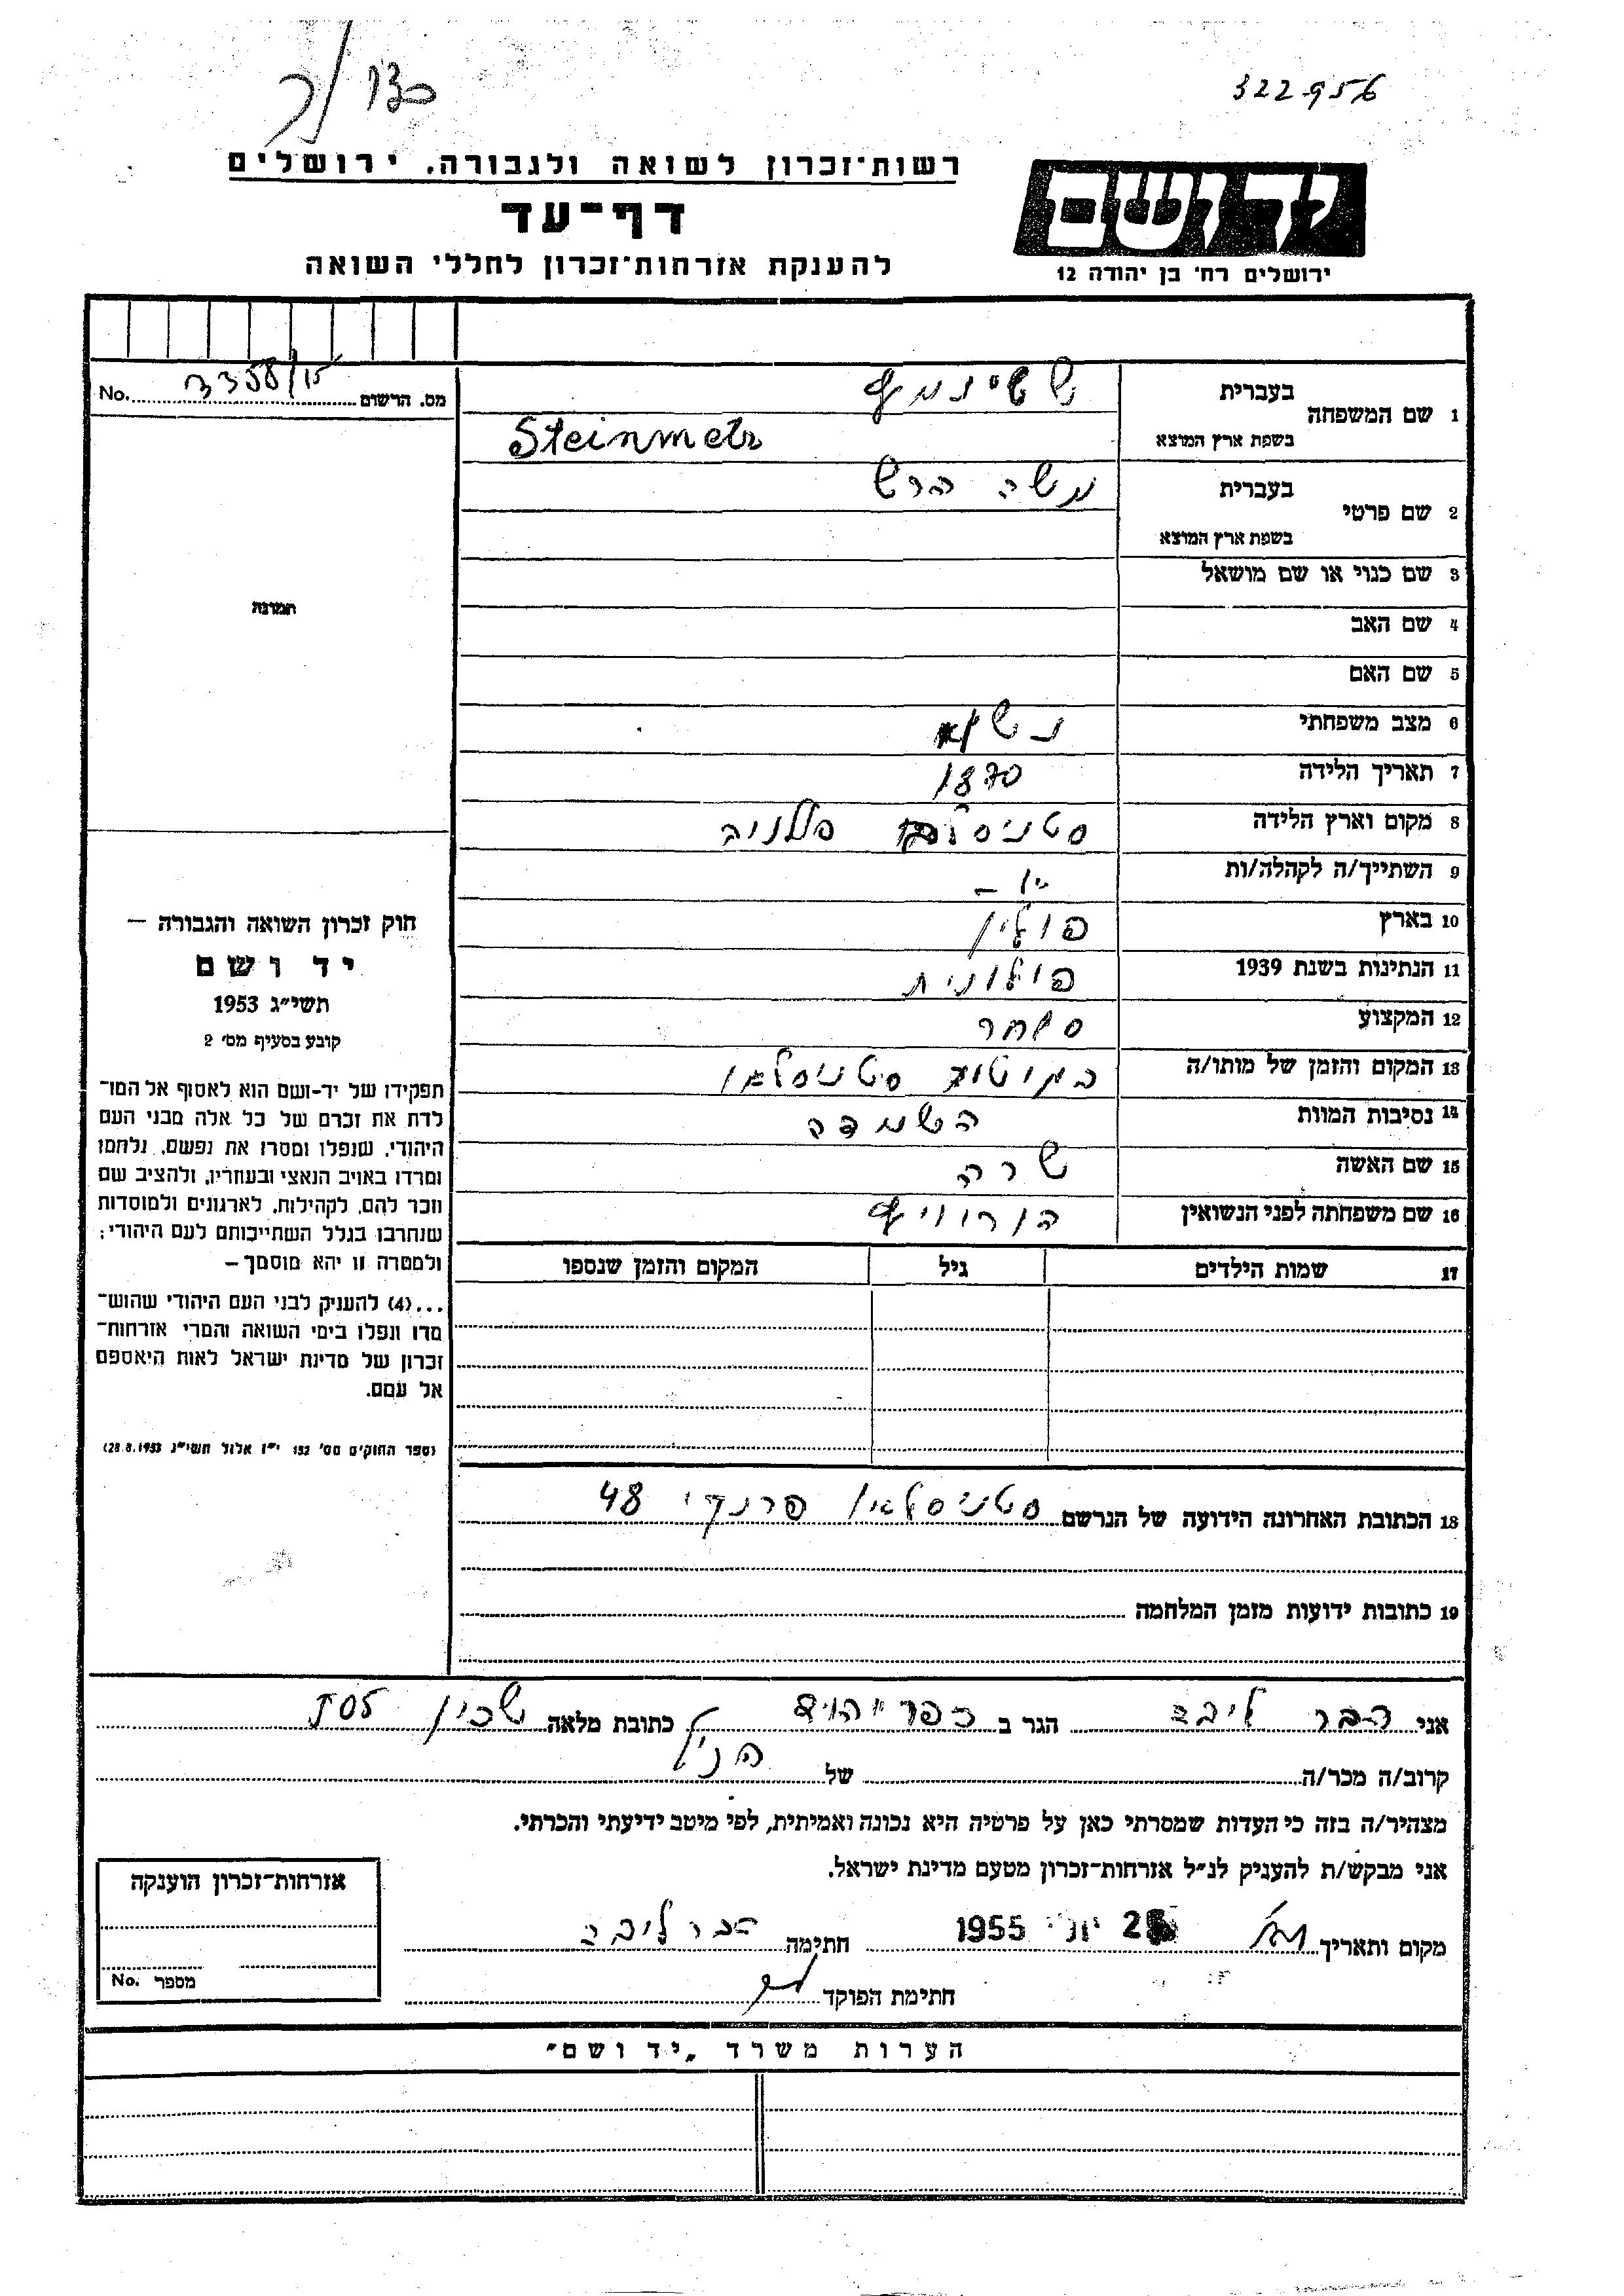 322956
רשות־זכרון לשואה ולגבורה, ירושלים
יד ושם
דף־עד
ירושלים רח׳ בן יהודה 12
להענקת אזרחות־זכרון לחללי השואה
מס. הרשום 3358/15 No.
1 שם המשפחה בעברית שטינמץ
בשפת ארץ המוצא Steinmetz
2 שם פרטי בעברית משה הרש
בשפת ארץ המוצא
3 שם כנוי או שם מושאל
תמונה
4 שם האב
5 שם האם
6 מצב משפחתי נשוא
7 תאריך הלידה 1870
8 מקום וארץ הלידה
9 השתייך/ה לקהלה/ות -״-
10 בארץ פולין
11 הנתינות בשנת 1939 פולונית
12 המקצוע סוחר
13 המקום והזמן של מותו/ה בגיטו סטניסלאו
14 נסיבות המוות השמדה
15 שם האשה שרה
16 שם משפחתה לפני הנשואין הורוויץ
17 שמות הילדים גיל המקום והזמן שנספו
חוק זכרון השואה והגבורה –
יד ושם
תשי״ג 1953
קובע בסעיף מס׳ 2
תפקידו של יד-ושם הוא לאסוף אל המו־
לדת את זכרם של כל אלה מבני העם
היהודי, שנפלו ומסרו את נפשם, נלחמו
ומרדו באויב הנאצי ובעוזריו, ולהציב שם
וזכר להם, לקהילות, לארגונים ולמוסדות
שנחרבו בגלל השתייכותם לעם היהודי;
ולמטרה זו יהא מוסמך –
...(4) להעניק לבני העם היהודי שהוש־
מדו ונפלו בימי השואה והמרי אזרחות־
זכרון של מדינת ישראל לאות היאספם
אל עמם.
(ספר החוקים מס׳ 132 י״ז אלול תשי״ג 28.8.1953)
18 הכתובת האחרונה הידועה של הנרשם סטניסלאו פרנקי 48
19 כתובות ידועות מזמן המלחמה
אני הבר ליבה הגר ב כתובת מלאה שכון 205
קרוב/ה מכר/ה של הנ״ל
מצהיר/ה בזה כי העדות שמסרתי כאן על פרטיה היא נכונה ואמיתית, לפי מיטב ידיעתי והכרתי.
אני מבקש/ת להעניק לנ״ל אזרחות־זכרון מטעם מדינת ישראל.
מקום ותאריך יוני 1955 חתימה הבר ליבה
חתימת הפוקד
אזרחות־זכרון הוענקה
מספר No.
הערות משרד „יד ושם״